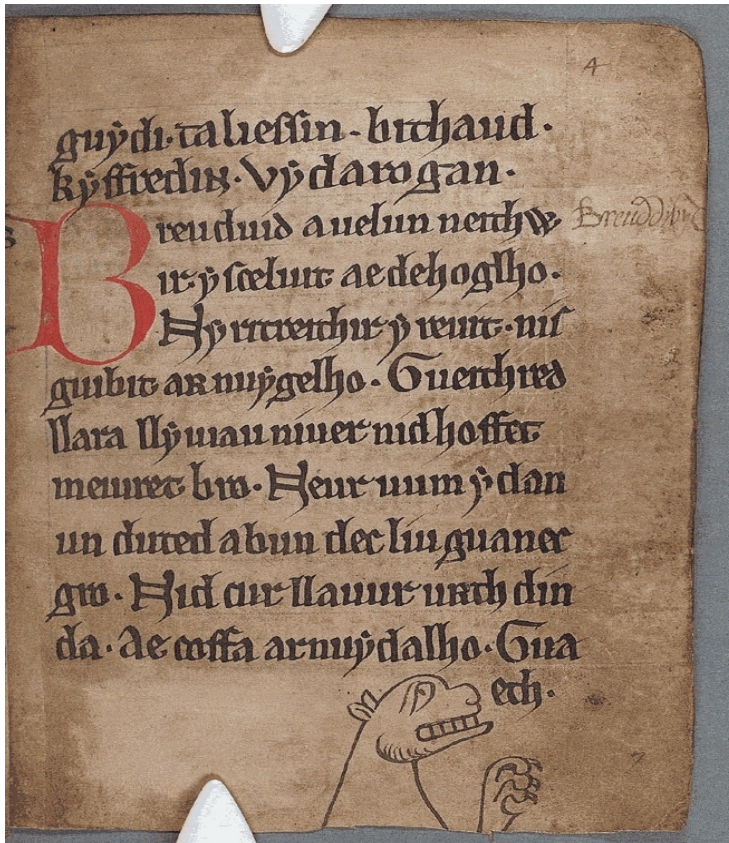 4
guẏdi. taliessin. bithaud.
kẏffredin. vẏ darogan.
Breuduid a uelun neithw
ir. ẏ sceluit ae dehoglho.
Nẏ ritreithir ẏ reuit. nis
guibit ar nuẏ gelho. Gueithred
llara llẏuiau niuer nid hoffet
meiuret bro. Neur uum ẏ dan
un duted a bun dec liu guanec
gro. Nid cur llauur urth din
da. Ae coffa ar nuẏ dalho. Gua
ech.